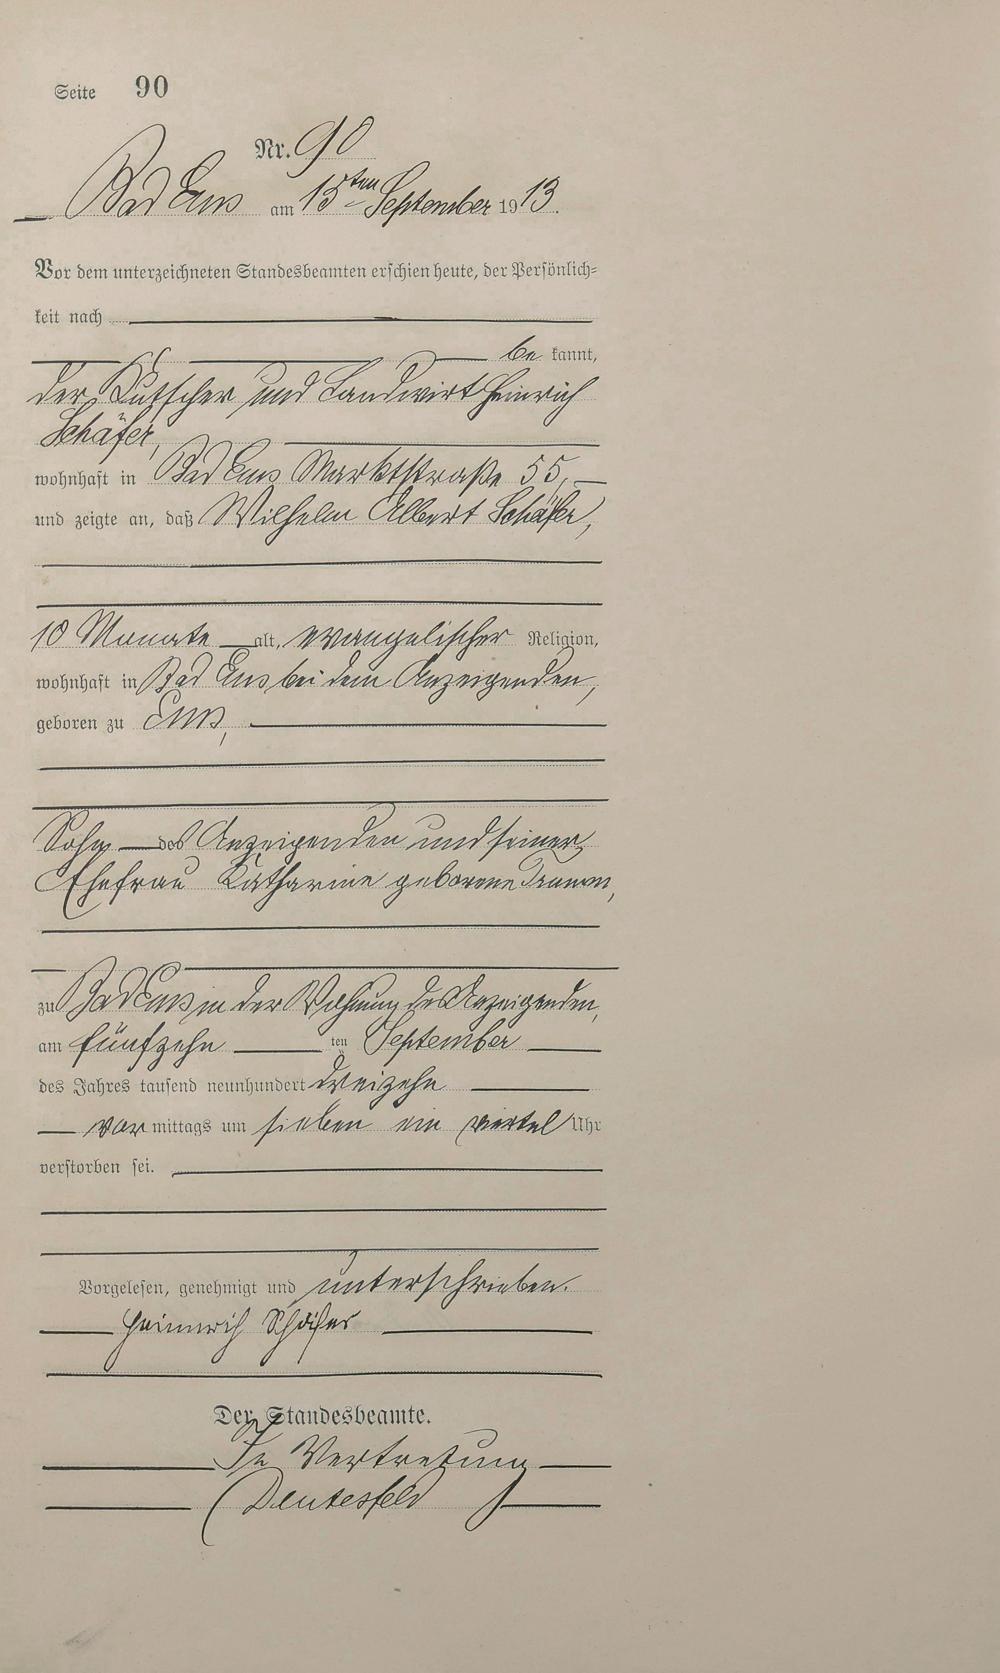 Seite 90
Nr. 90
Bad Ems am 15ten September 1913.
Vor dem unterzeichneten Standesbeamten erschien heute, der Persönlich-
keit nach
be kannt,
der Kutscher und Landwirt Heinrich
Schäfer,
wohnhaft in Bad Ems Marktstraße 55,
und zeigte an, daß Wilhelm Albert Schäfer,
10 Monate alt, evangelischer Religion,
wohnhaft in Bad Ems bei dem Anzeigenden,
geboren zu Ems,
Sohn des Anzeigenden und seiner
Ehefrau Katharine geborene
zu Bad Ems in der Wohnung des Anzeigenden,
am fünfzehn ten September
des Jahres tausend neunhundert dreizehn
vor mittags um sieben ein viertel Uhr
verstorben sei.
Vorgelesen, genehmigt und unterschrieben.
Heinrich Schäfer
Der Standesbeamte.
In Vertretung